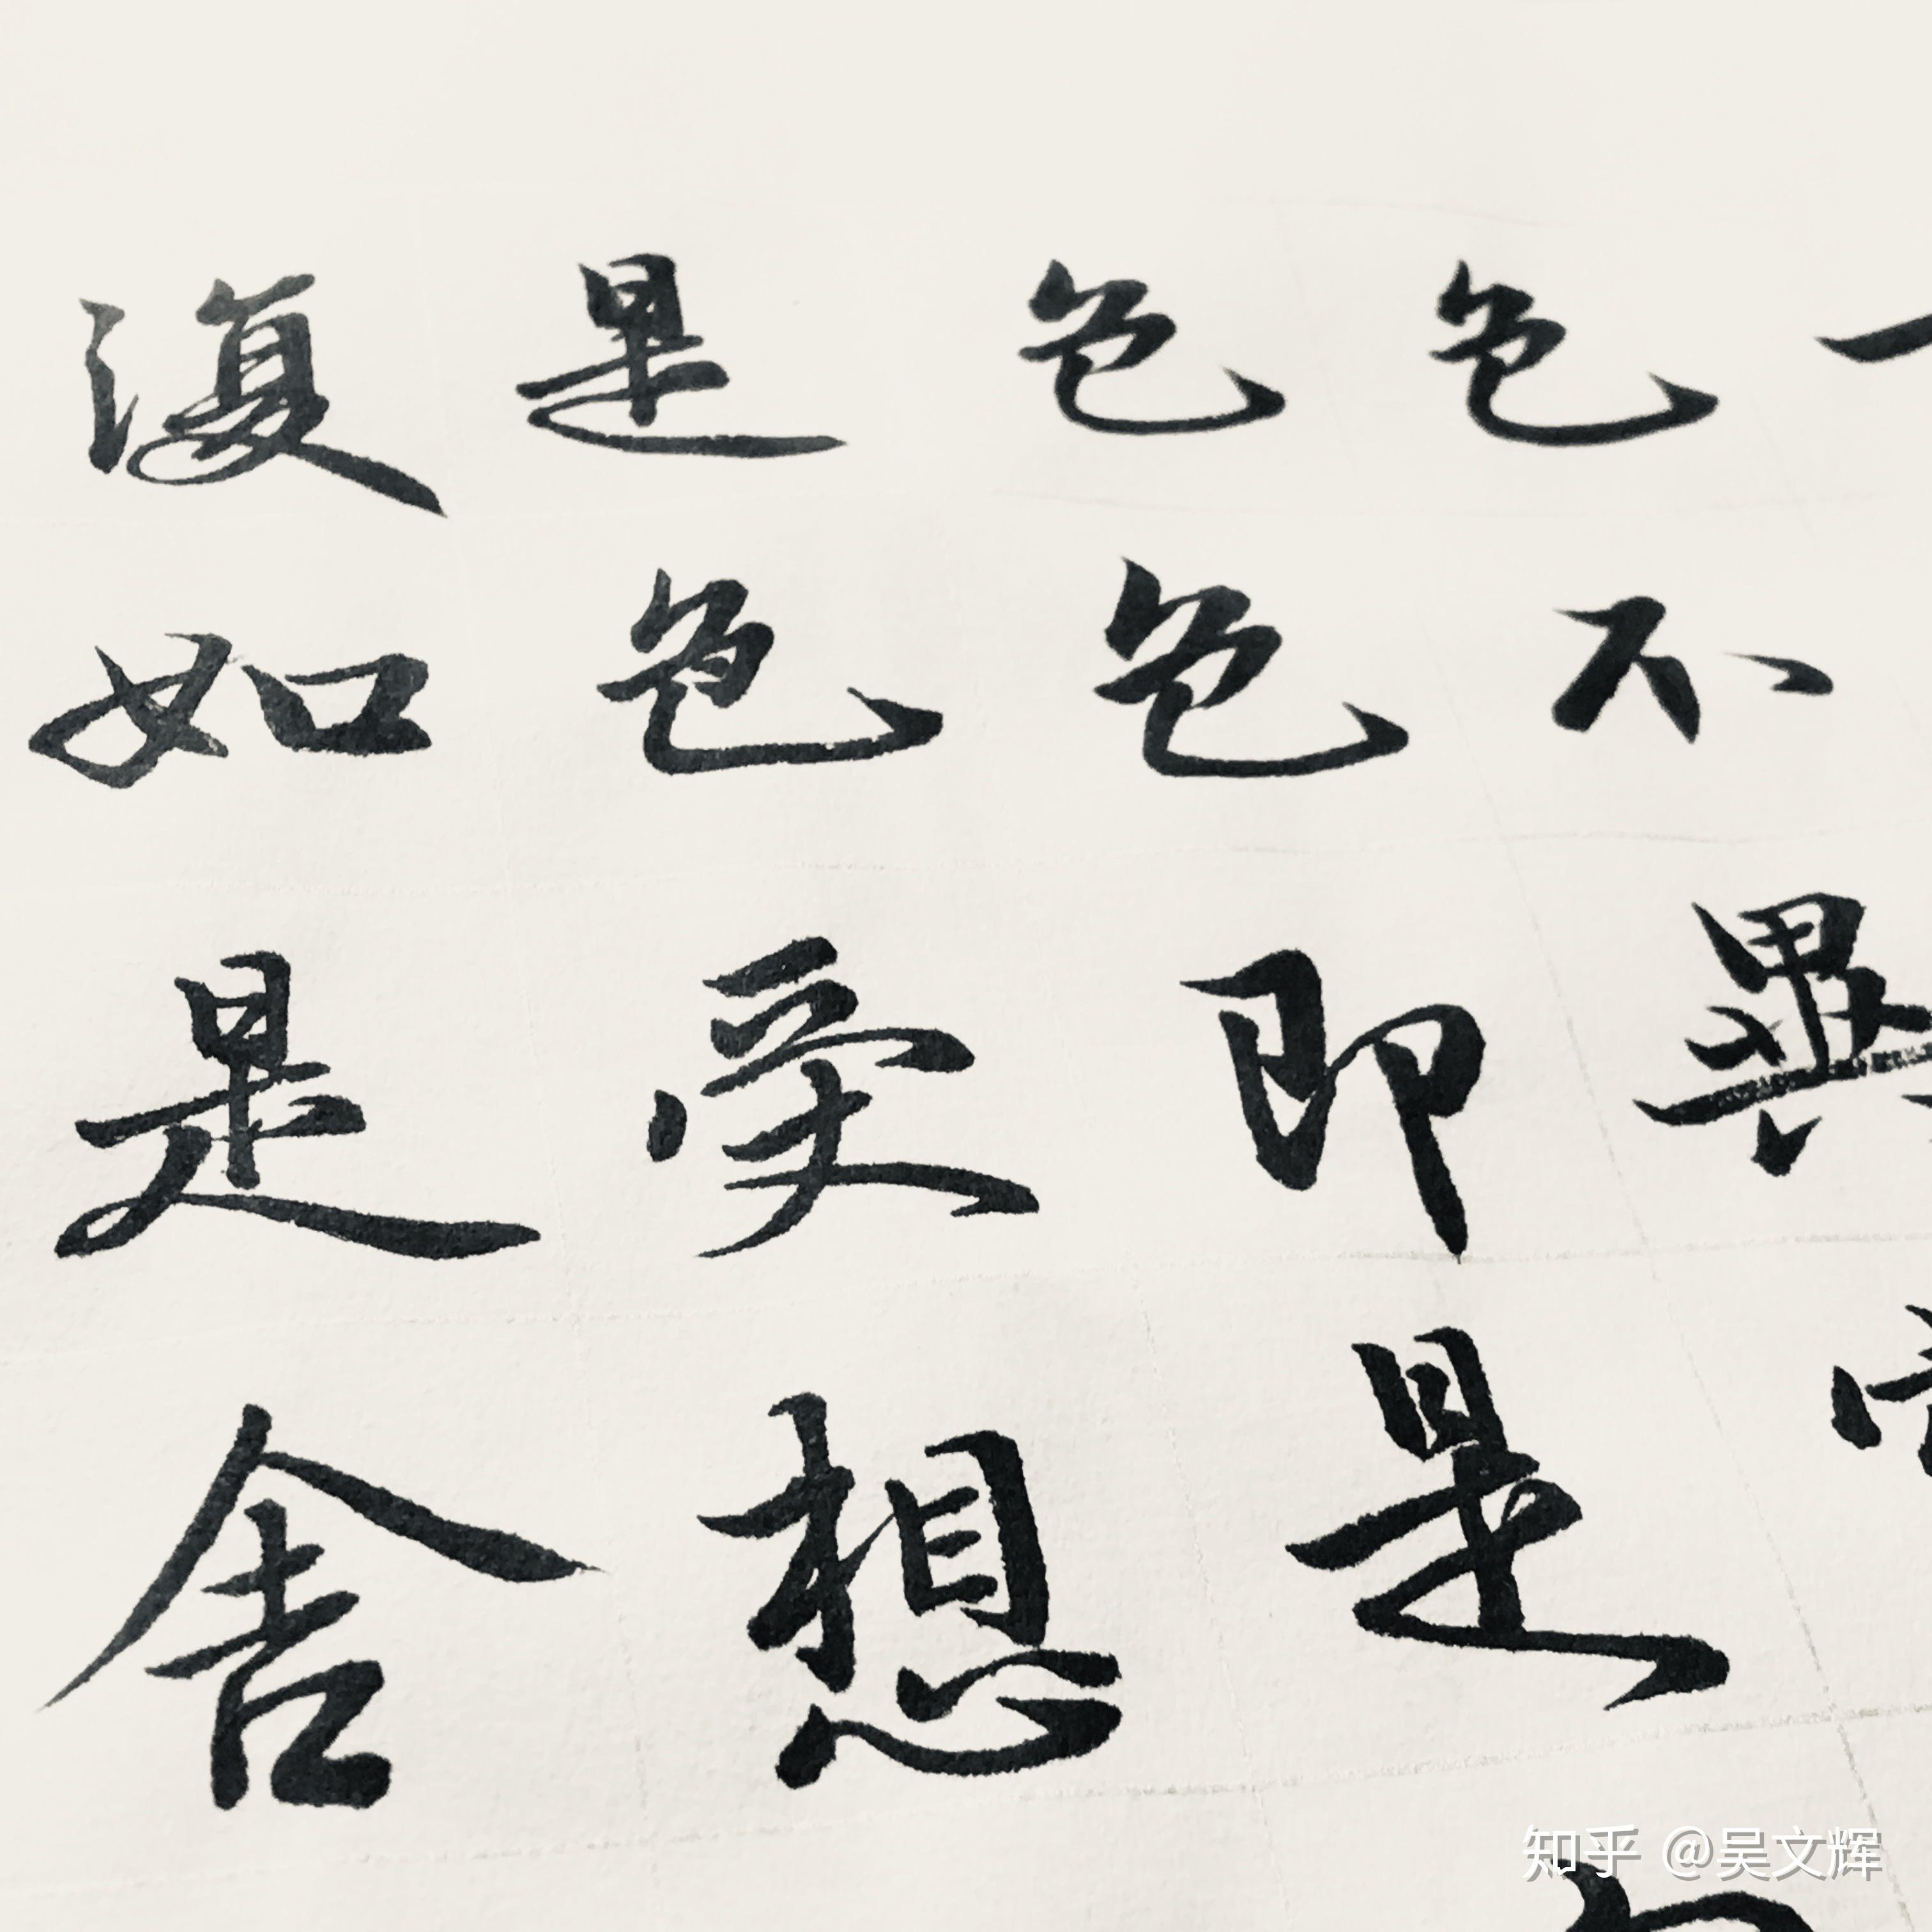 色不異
色色即是
是色受想
復如是舍
知乎 @吴文辉